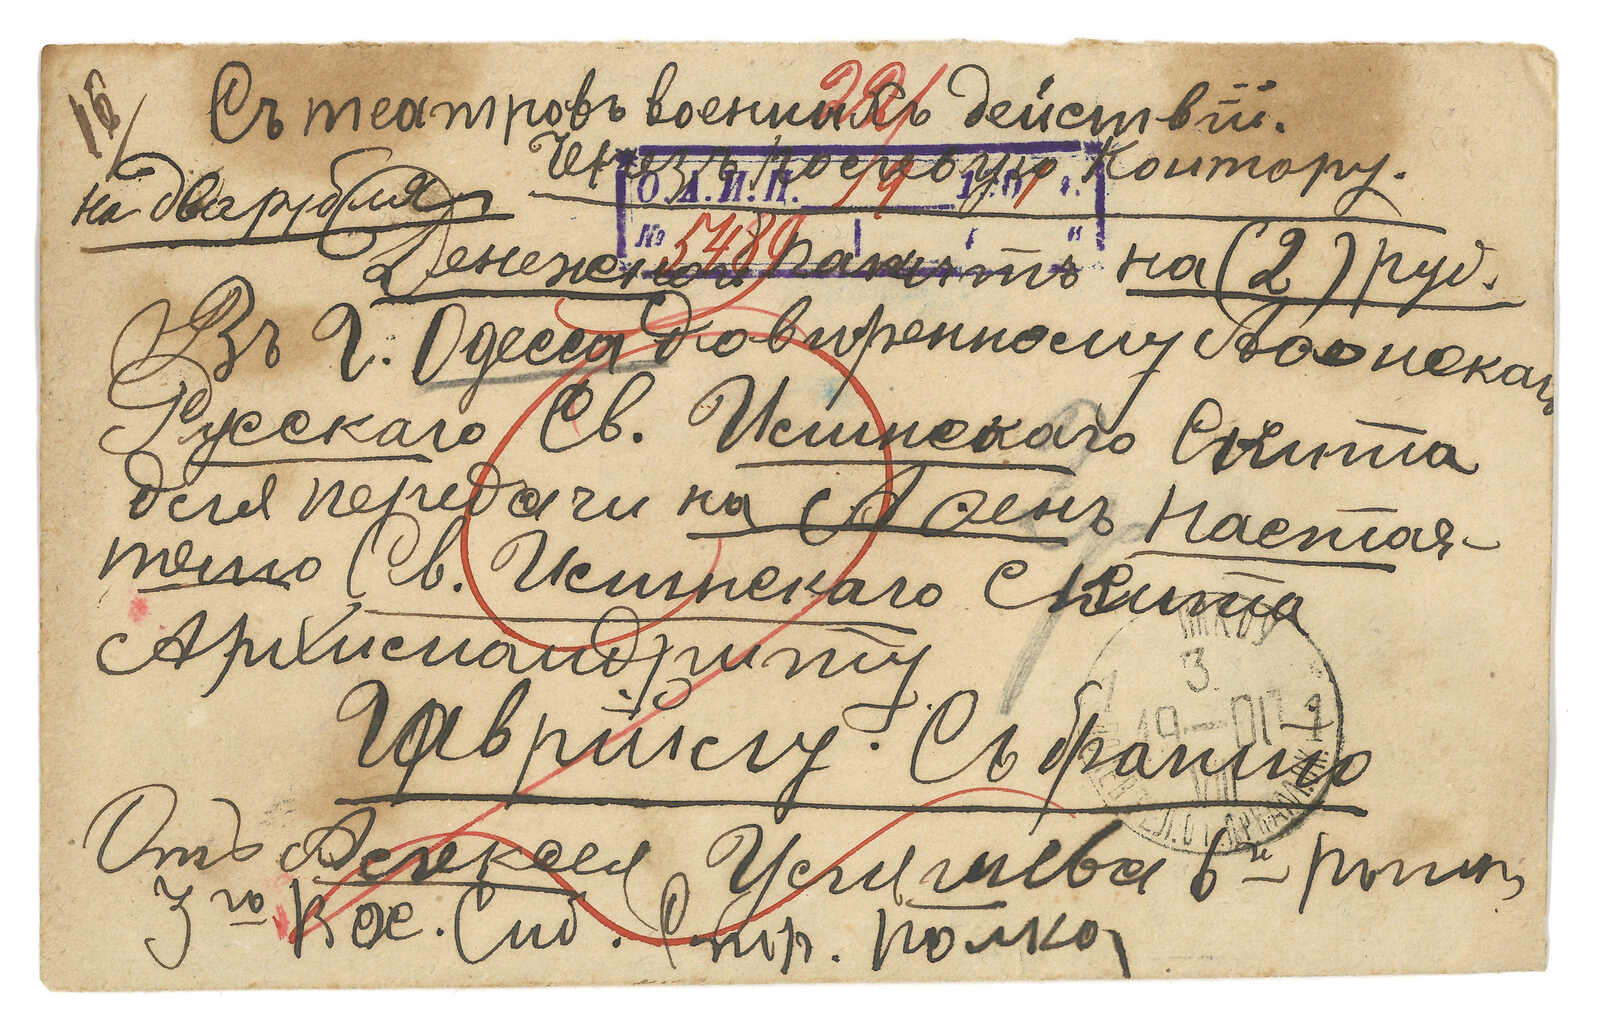 16/
Съ театровъ военныхъ действiй.
Черезъ посевую Контору.
на два рубля
22/
О.А.И.П. 19 1.01 г.
№ 5489
Денежной пакитъ на (2) руб.
Въ г. Одесса довиренному Афонскаго
Русскаго Св. Илинскаго Скита
для передачи на Афонъ Настая-
телю Св. Илинскаго Скита
Архимандриту
Гаврiилу. Съ братiею
Отъ Алексея 6й роты
3го Вос. Сиб. Стр. полка
3
19-01
VIII
1